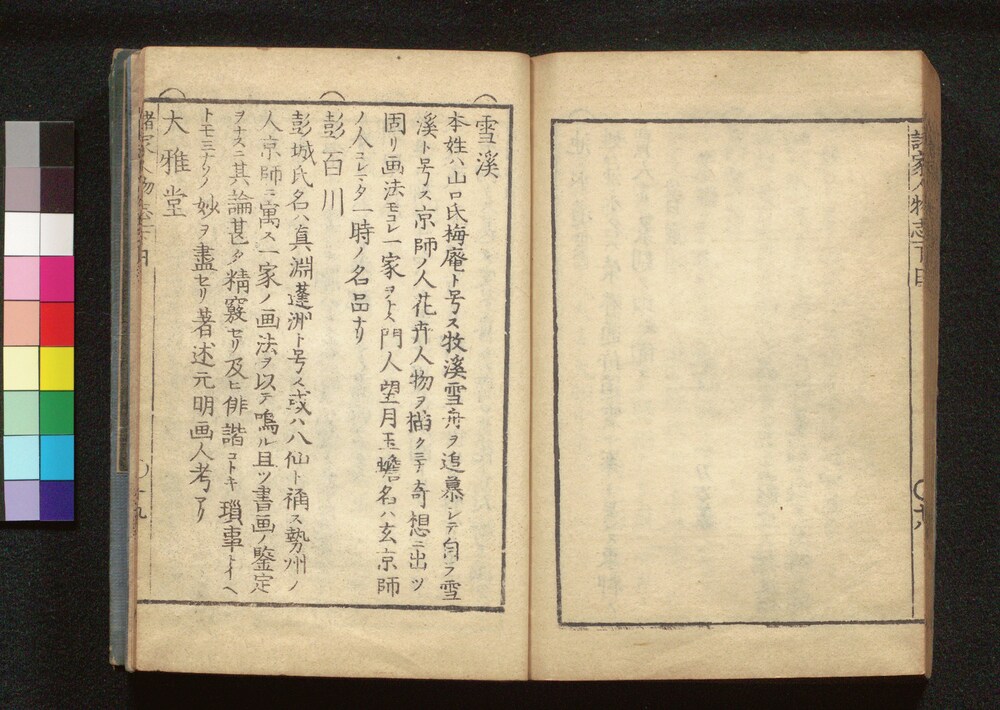 諸家人物志下
雪溪
本姓ハ山口氏梅庵ト号ス牧溪雪舟ヲ追慕シテ自ラ雪
溪ト号ス京師ノ人花卉人物ヲ描クミナ奇想ニ出ツ
固リ画法モコレ一家ヲトス門人望月玉蟾名ハ玄京師
ノ人コレマタ一時ノ名品ナリ
彭百川
彭城氏名ハ真淵蓬洲ト号ス或ハ八仙ト稱ス勢州ノ
人京師ニ寓ス一家ノ画法ヲ以テ鳴ル且ツ書画ノ鑒定
ヲナスニ其論甚タ精竅セリ及ヒ俳諧コトキ瑣事トイヘ
トモミナソノ妙ヲ盡セリ著述元明画人考アリ
大雅堂
諸家人物志下
〇十九